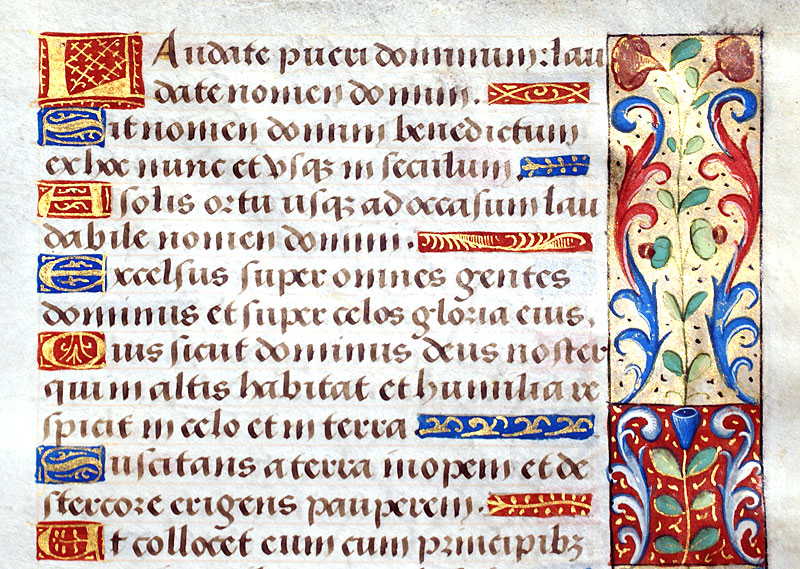 LAudate pueri dominum: lau
date nomen domini.
Sit nomen domini benedictum
ex hoc nunc et vsqꝫ in seculum
A solis ortu usqꝫ ad occasum lau
dabile nomen domini.
Excelsus super omnes gentes
dominus et super celos gloria eius.
Quis sicut dominus deus noster
qui in altis habitat et humilia re
spicit in celo et in terra
Suscitans a terra inopem et de
stercore erigens pauperem.
Et collocet eum cum principibꝫ